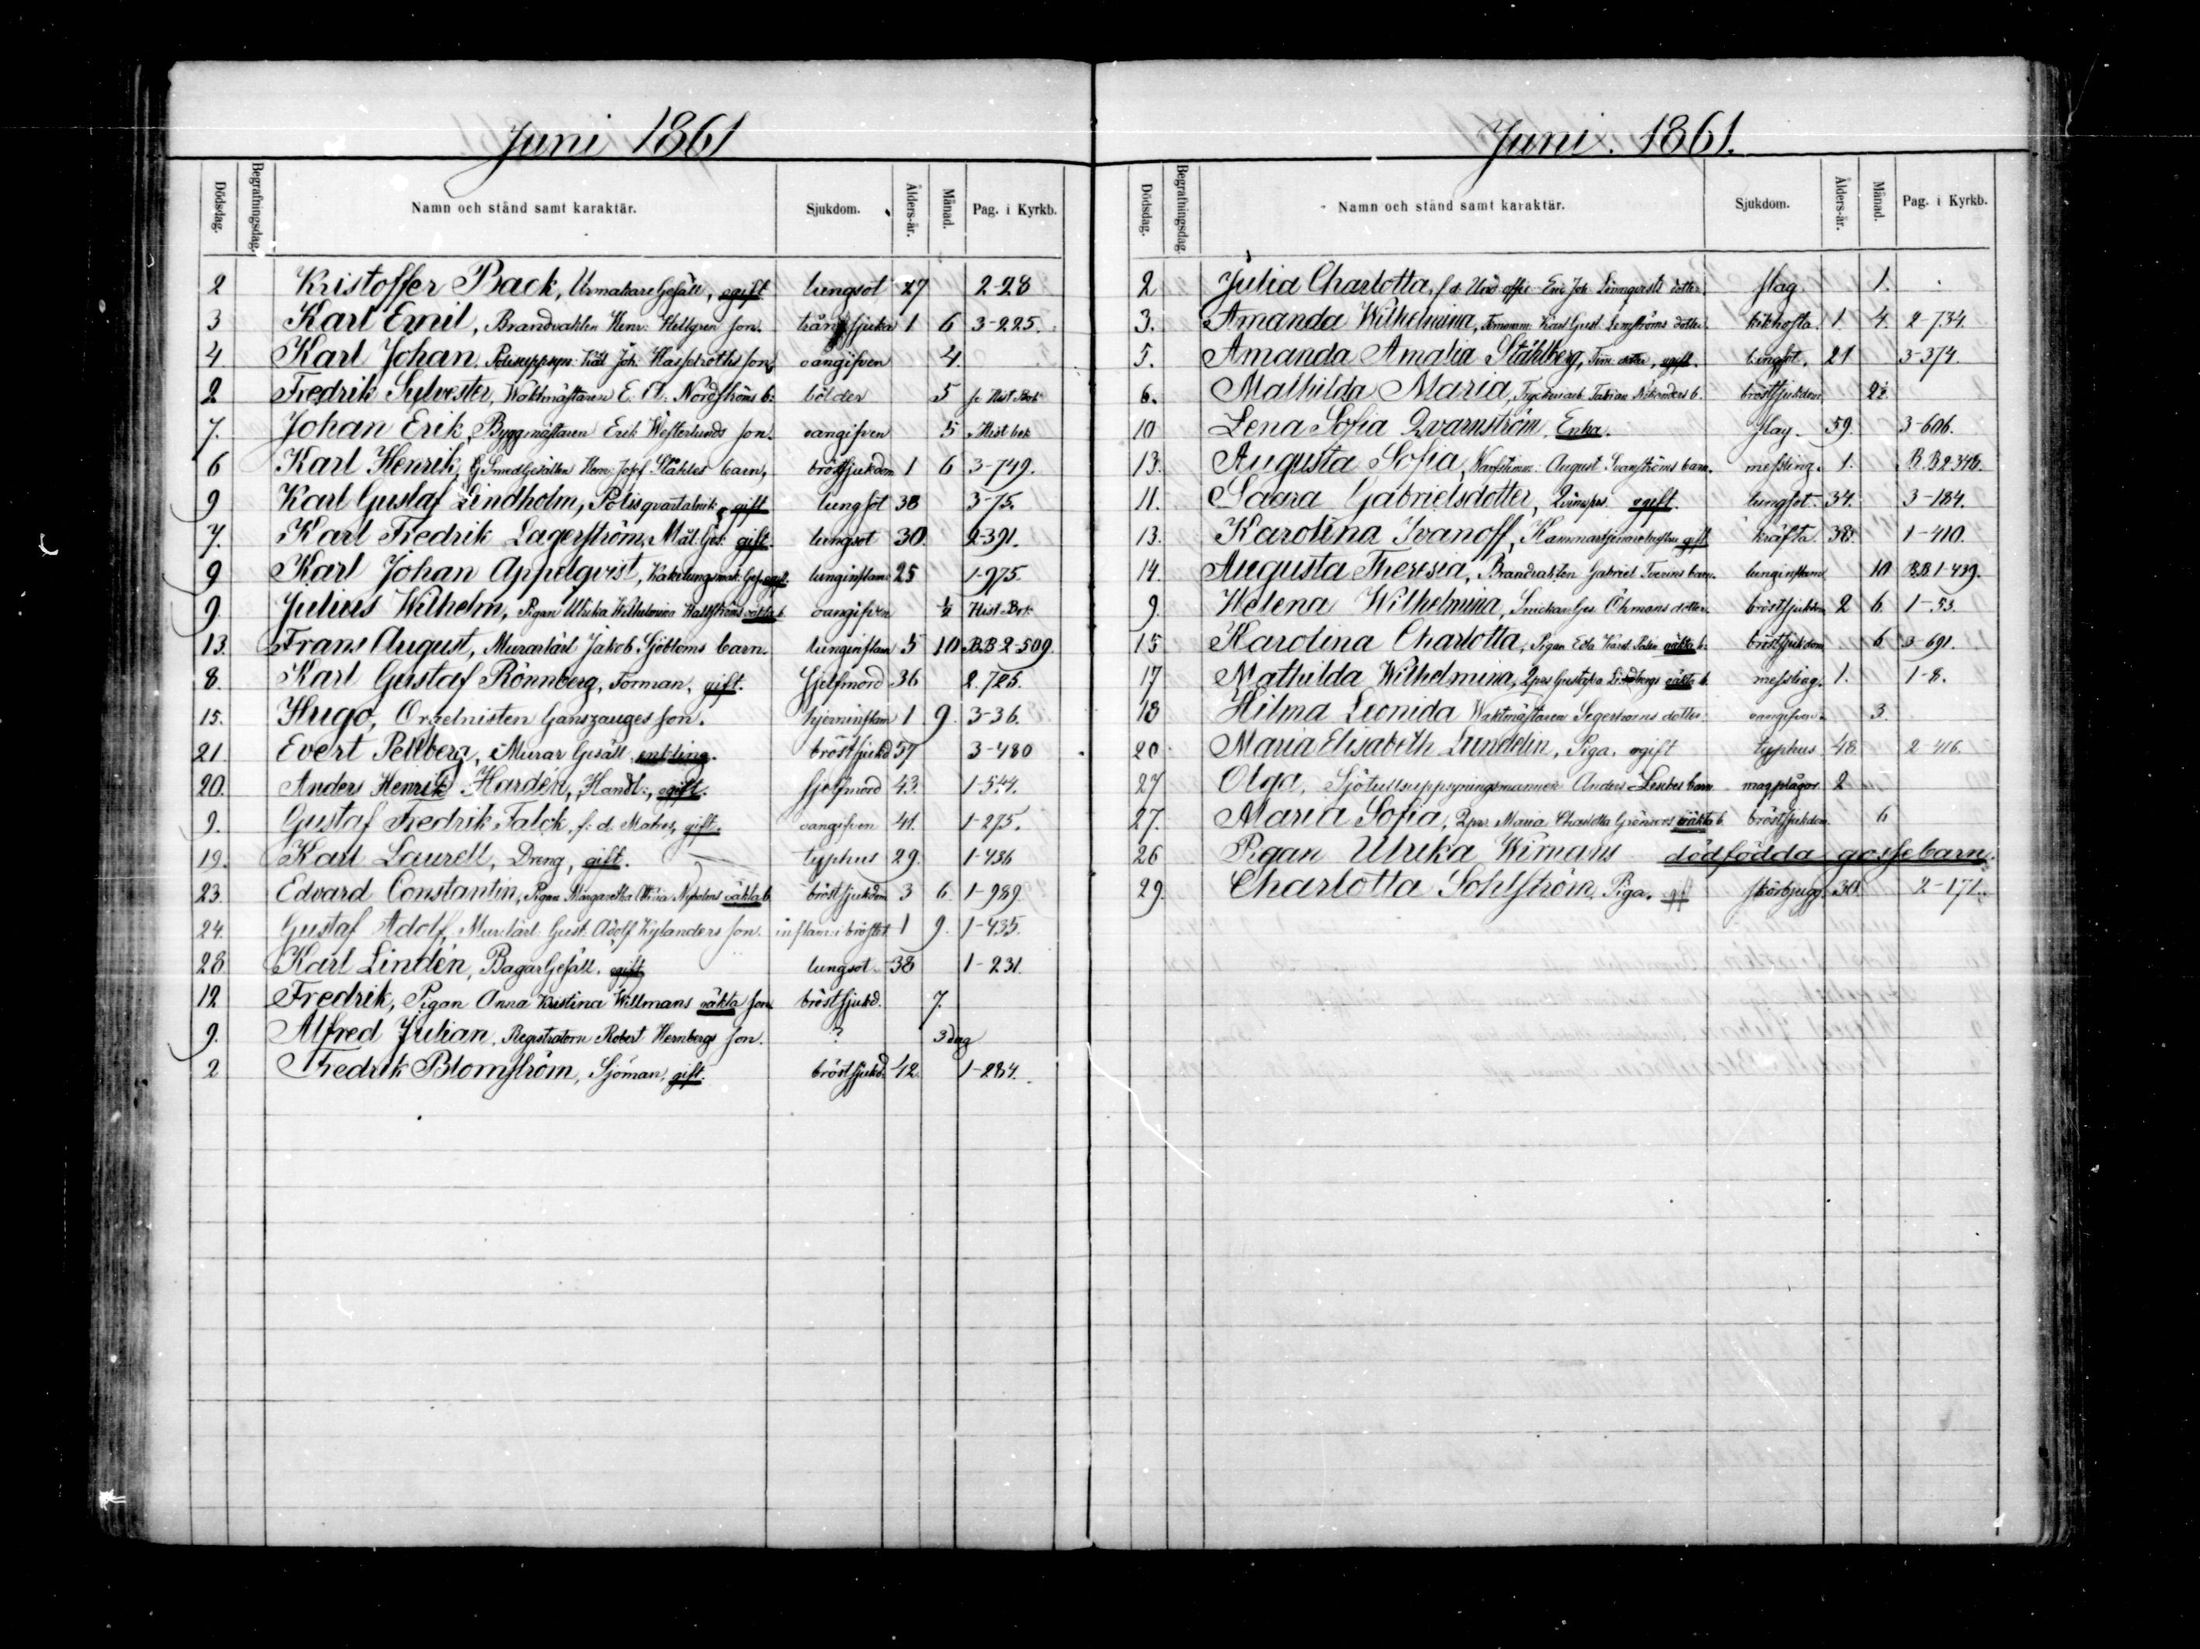 Juni 1861
Dödsdag. Begrafningsdag. Namn och stånd samt karaktär. Sjukdom. Ålders-år. Månad. Pag. i Kyrkb.
2 Kristoffer Back, Urmakare Gesäll, ogift lungsot 27 2-28
3 Karl Emil, Brandvakten Henr: Hellgren son. 1 6 3-225.
4 Karl Johan, Joh: Hasselroths son, oangifven 4.
2 Fredrik Sylvester, Waktmästaren E. A: Nordströms b: bölder 5 se Hist Bok
7. Johan Erik, Byggmästaren Erik Westerlunds son. oangifven 5 Hist bok
6 Karl Henrik, Smed Gesällen Henr: Josef Ståhles barn, bröstsjukdom 1 6 3-749.
9 Karl Gustaf Lindholm, gift lungsot 38 3-75.
7. Karl Fredrik Lagerström, Mål. Ges: gift. lungsot 30 2-391.
9 Karl Johan Appelqvist, Kakelungsmak: Ges. ogift. lunginflam 25 1-975.
9. Julius Wilhelm, Pigan Ulrika Wilhelmina Wallströms oäkta b. oangifven ½ Hist Bok
13. Frans August, Murarlärl Jakob Sjöbloms barn. lunginflam 5 10 B.B 2-509.
8. Karl Gustaf Rönnberg, Forman, gift. sjelfmord 36 2. 725.
15. Hugo, Orgelnisten Ganszauges son. hjerninflam 1 9. 3-36.
21 Evert Pellberg, Murar Gesäll, enkling. bröstsjukd 57 3-480
20. Anders Henrik Hardén, Handl:, ogift. sjelfmord 43. 1-544.
9. Gustaf Fredrik Falck, f: d. gift. oangifven 41. 1-275.
19. Karl Laurell, Dreng, gift. typhus 29. 1-436
23. Edvard Constantin, Pigan Margaretha Nyholms oäkta b bröstsjukdom 3 6. 1-989.
24. Gustaf Adolf, Murlärl: Gust. Adolf Kylanders son. inflam: i bröstet 1 9. 1-435.
28 Karl Lindén, Bagar Gesäll, ogift lungsot 38 1-231.
12 Fredrik, Pigan Anna Kristina Willmans oäkta son. bröstsjukd. 7.
9. Alfred Julian, Registratorn Robert Hernbergs son. ? 3 dag
2 Fredrik Blomström, Sjöman, gift. bröstsjukd. 42. 1-284.
Juni. 1861.
Dödsdag. Begrafningsdag. Namn och stånd samt karaktär. Sjukdom. Ålders-år. Månad. Pag. i Kyrkb.
2 Julia Charlotta, f.d. Und. offic. Eric Joh. Lönnqvists dotter. slag 1.
3. Amanda Wilhelmina, Karl Gust. Lemströms dotter. kikhosta. 1. 4. 2-734.
5. Amanda Amalia Ståhlberg, Tim: dotter, ogift. lungsot. 21 3-374.
6. Mathilda Maria, Tryckeriarb. Fabian Nikanders b. bröstsjukdom 2½
10 Lena Sofia Qvarnström, Enka. slag. 59. 3-606.
13. Augusta Sofia, August Svanströms barn. messling. 1. B.B 2.346.
11. Saara Gabrielsdotter, ogift. lungsot. 34. 3-184.
13. Karolina Ivanoff, gift kräfta 38. 1-410.
14. Augusta Theresia, Brandvakten Gabriel barn. lunginflam 10 B.B. 1-439.
9. Helena Wilhelmina, Snickar Ges. Öhmans dotter. bröstsjukdom 2 6. 1-53.
15 Karolina Charlotta, Pigan Eda oäkta b. bröstsjukdom 6 3-691.
17 Mathilda Wilhelmina, Qps Gustafva Lindbergs oäkta b. messling. 1. 1-8.
18 Hilma Leonida Waktmästaren Segerstroms dotter. oangifven. 3.
20 Maria Elisabeth Lundelin, Piga, ogift typhus 48. 2-416.
27 Olga, Sjötullsuppsyningsmannen Anders barn magplågor 2
27. Maria Sofia, Qps. Maria Charlotta Grönroos oäkta b. bröstsjukdom 6
26 Pigan Ulrika Wimans dödfödda gossebarn.
29. Charlotta Sohlström, Piga. skörbjugg. 30. 2-171.